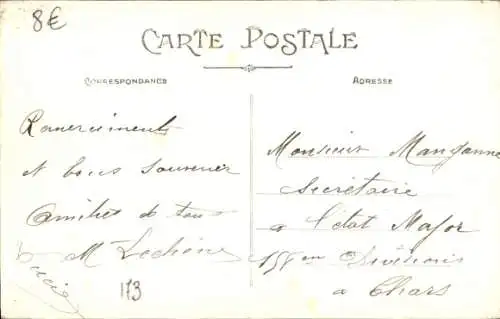 8€
CARTE POSTALE
CORRESPONDANCE
ADRESSE
Remerciments
et bons souvenir
Amities de tous
M Lechêne
Monsieur Mangonne
Secrétaire
a l'état Major
158em Divisions
a Chars
173